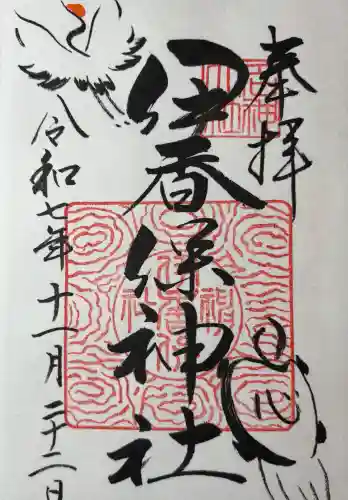 奉拝
伊香保神社
令和七年十一月二十二日